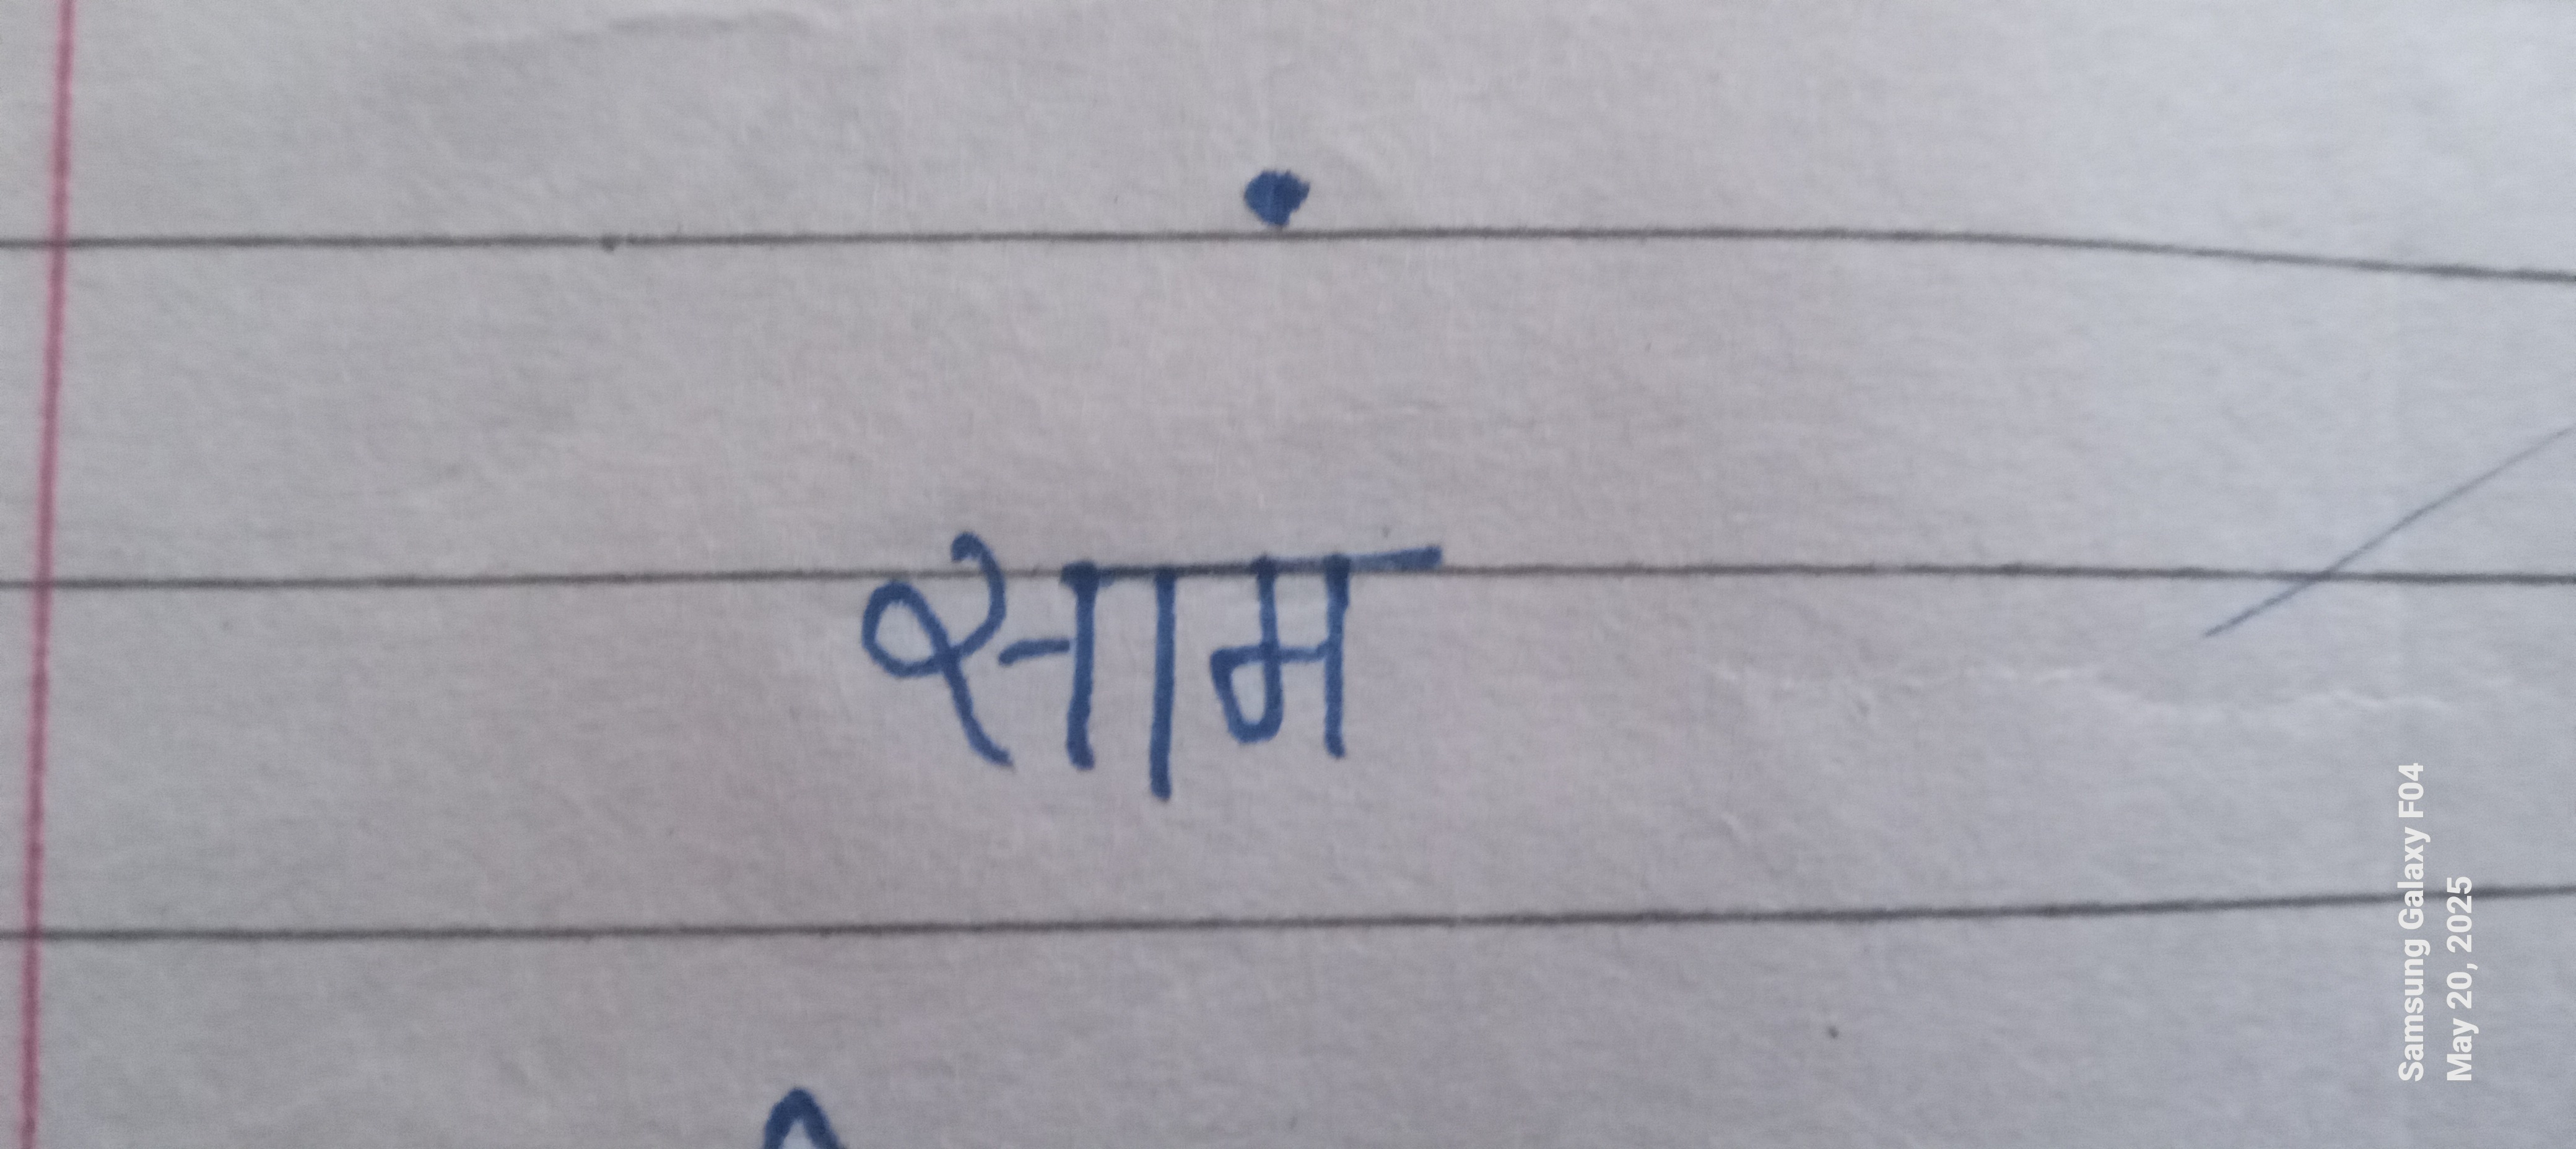 साम
Samsung Galaxy F04
May 20, 2025